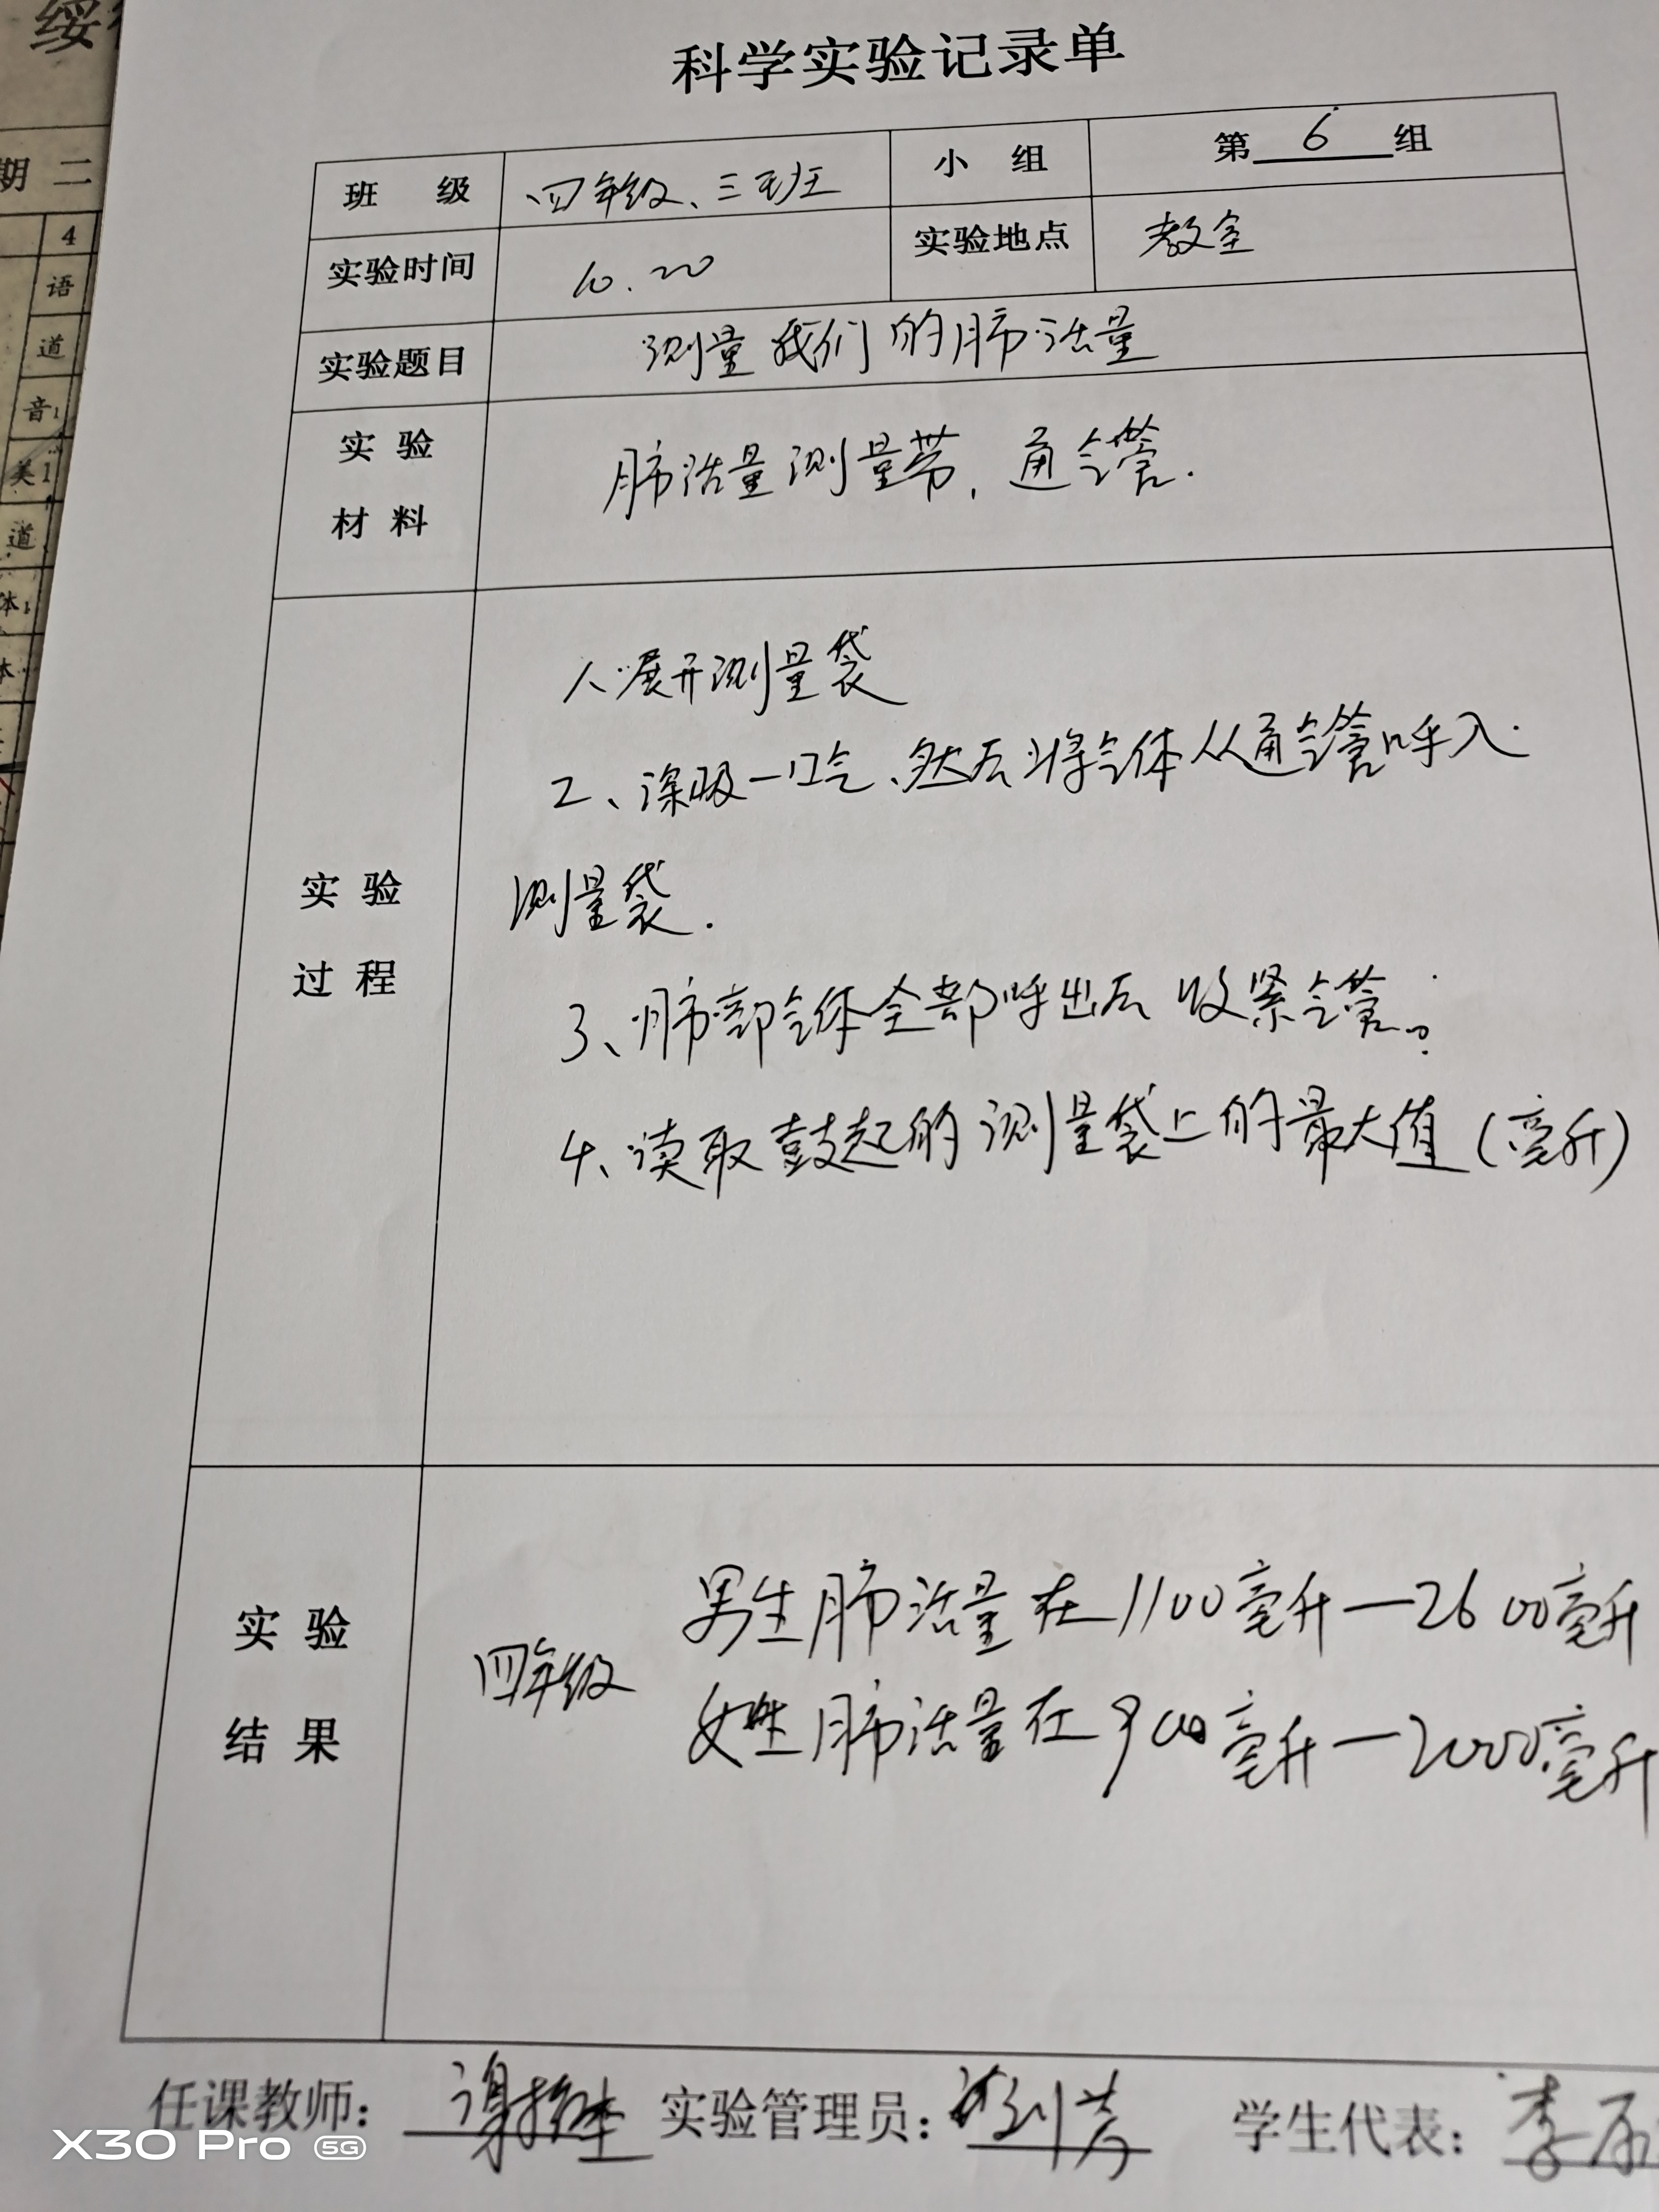 绥
期 二
4
语
道
音1
美1
道
体1
科学实验记录单
班 级 四年级、三班 小 组 第 6 组
实验时间 10.20 实验地点 教室
实验题目 测量我们的肺活量
实验 材料 肺活量测量带,通气管.
实验 过程
1、展开测量袋
2、深吸一口气、然后将气体从通气管呼入
测量袋.
3、肺部气体全部呼出后收紧气管。
4、读取鼓起的测量袋上的最大值(毫升)
实验 结果
四年级
男生肺活量在1100毫升—2600毫升
女生肺活量在900毫升—2000毫升
任课教师: 谢 实验管理员: 学生代表: 李
X30 Pro 5G